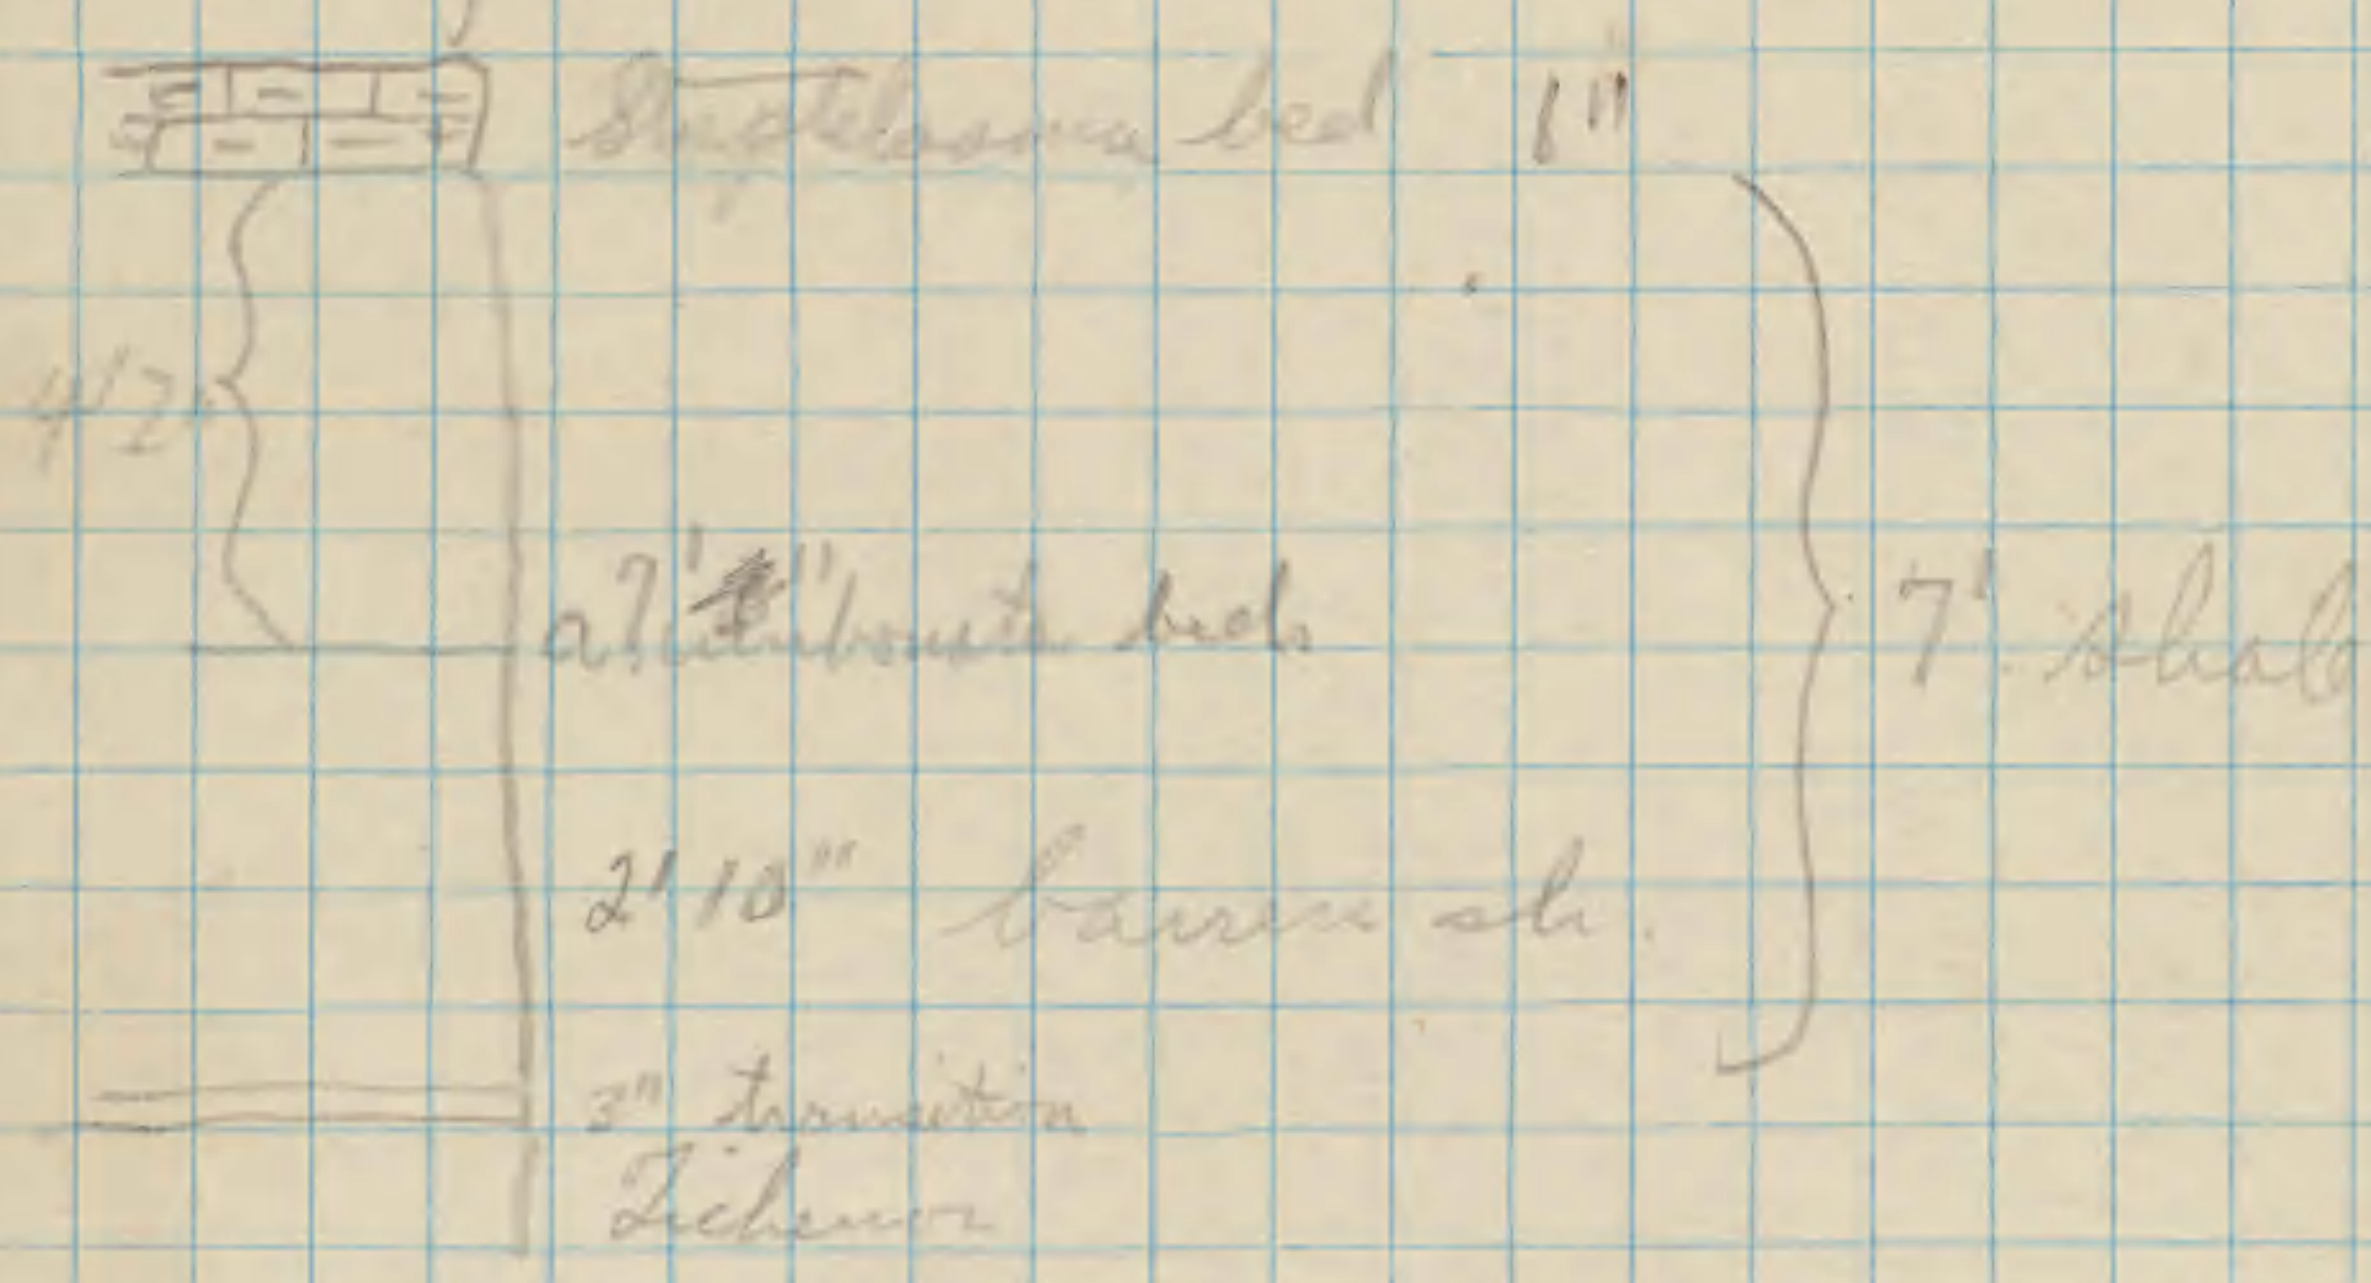 Streptelasma bed 6"
4'2"
beds
7' shale
2' 10" barren sh.
3" transition
Tichenor